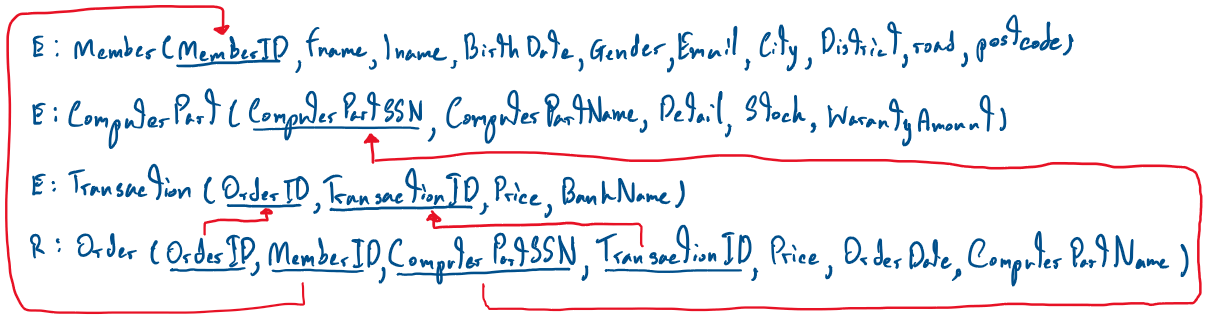 E: Member(MemberID, fname, lname, BirthDate, Gender, Email, City, District, road, postcode)
E: ComputerPart(ComputerPartSSN, ComputerPartName, Detail, Stock, WarantyAmount)
E: Transaction(OrderID, TransactionID, Price, BankName)
R: Order(OrderID, MemberID, ComputerPartSSN, TransactionID, Price, OrderDate, ComputerPartName)